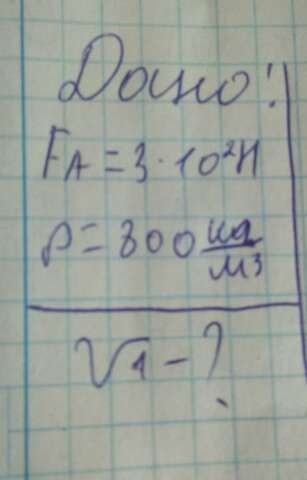 Дано:
FA = 3 · 10²Н
ρ = 800 кг/м³
V1 - ?